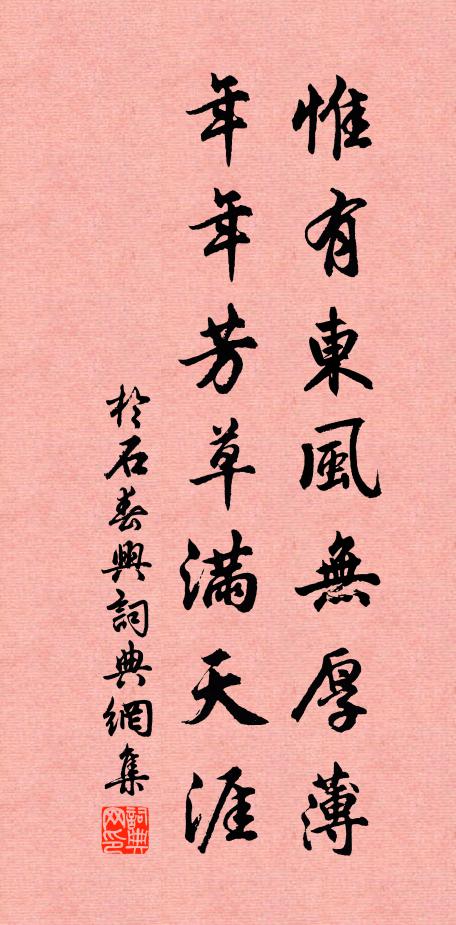 惟有東風無厚薄
年年芳草滿天涯
於石春興詞典網集
詞典网印